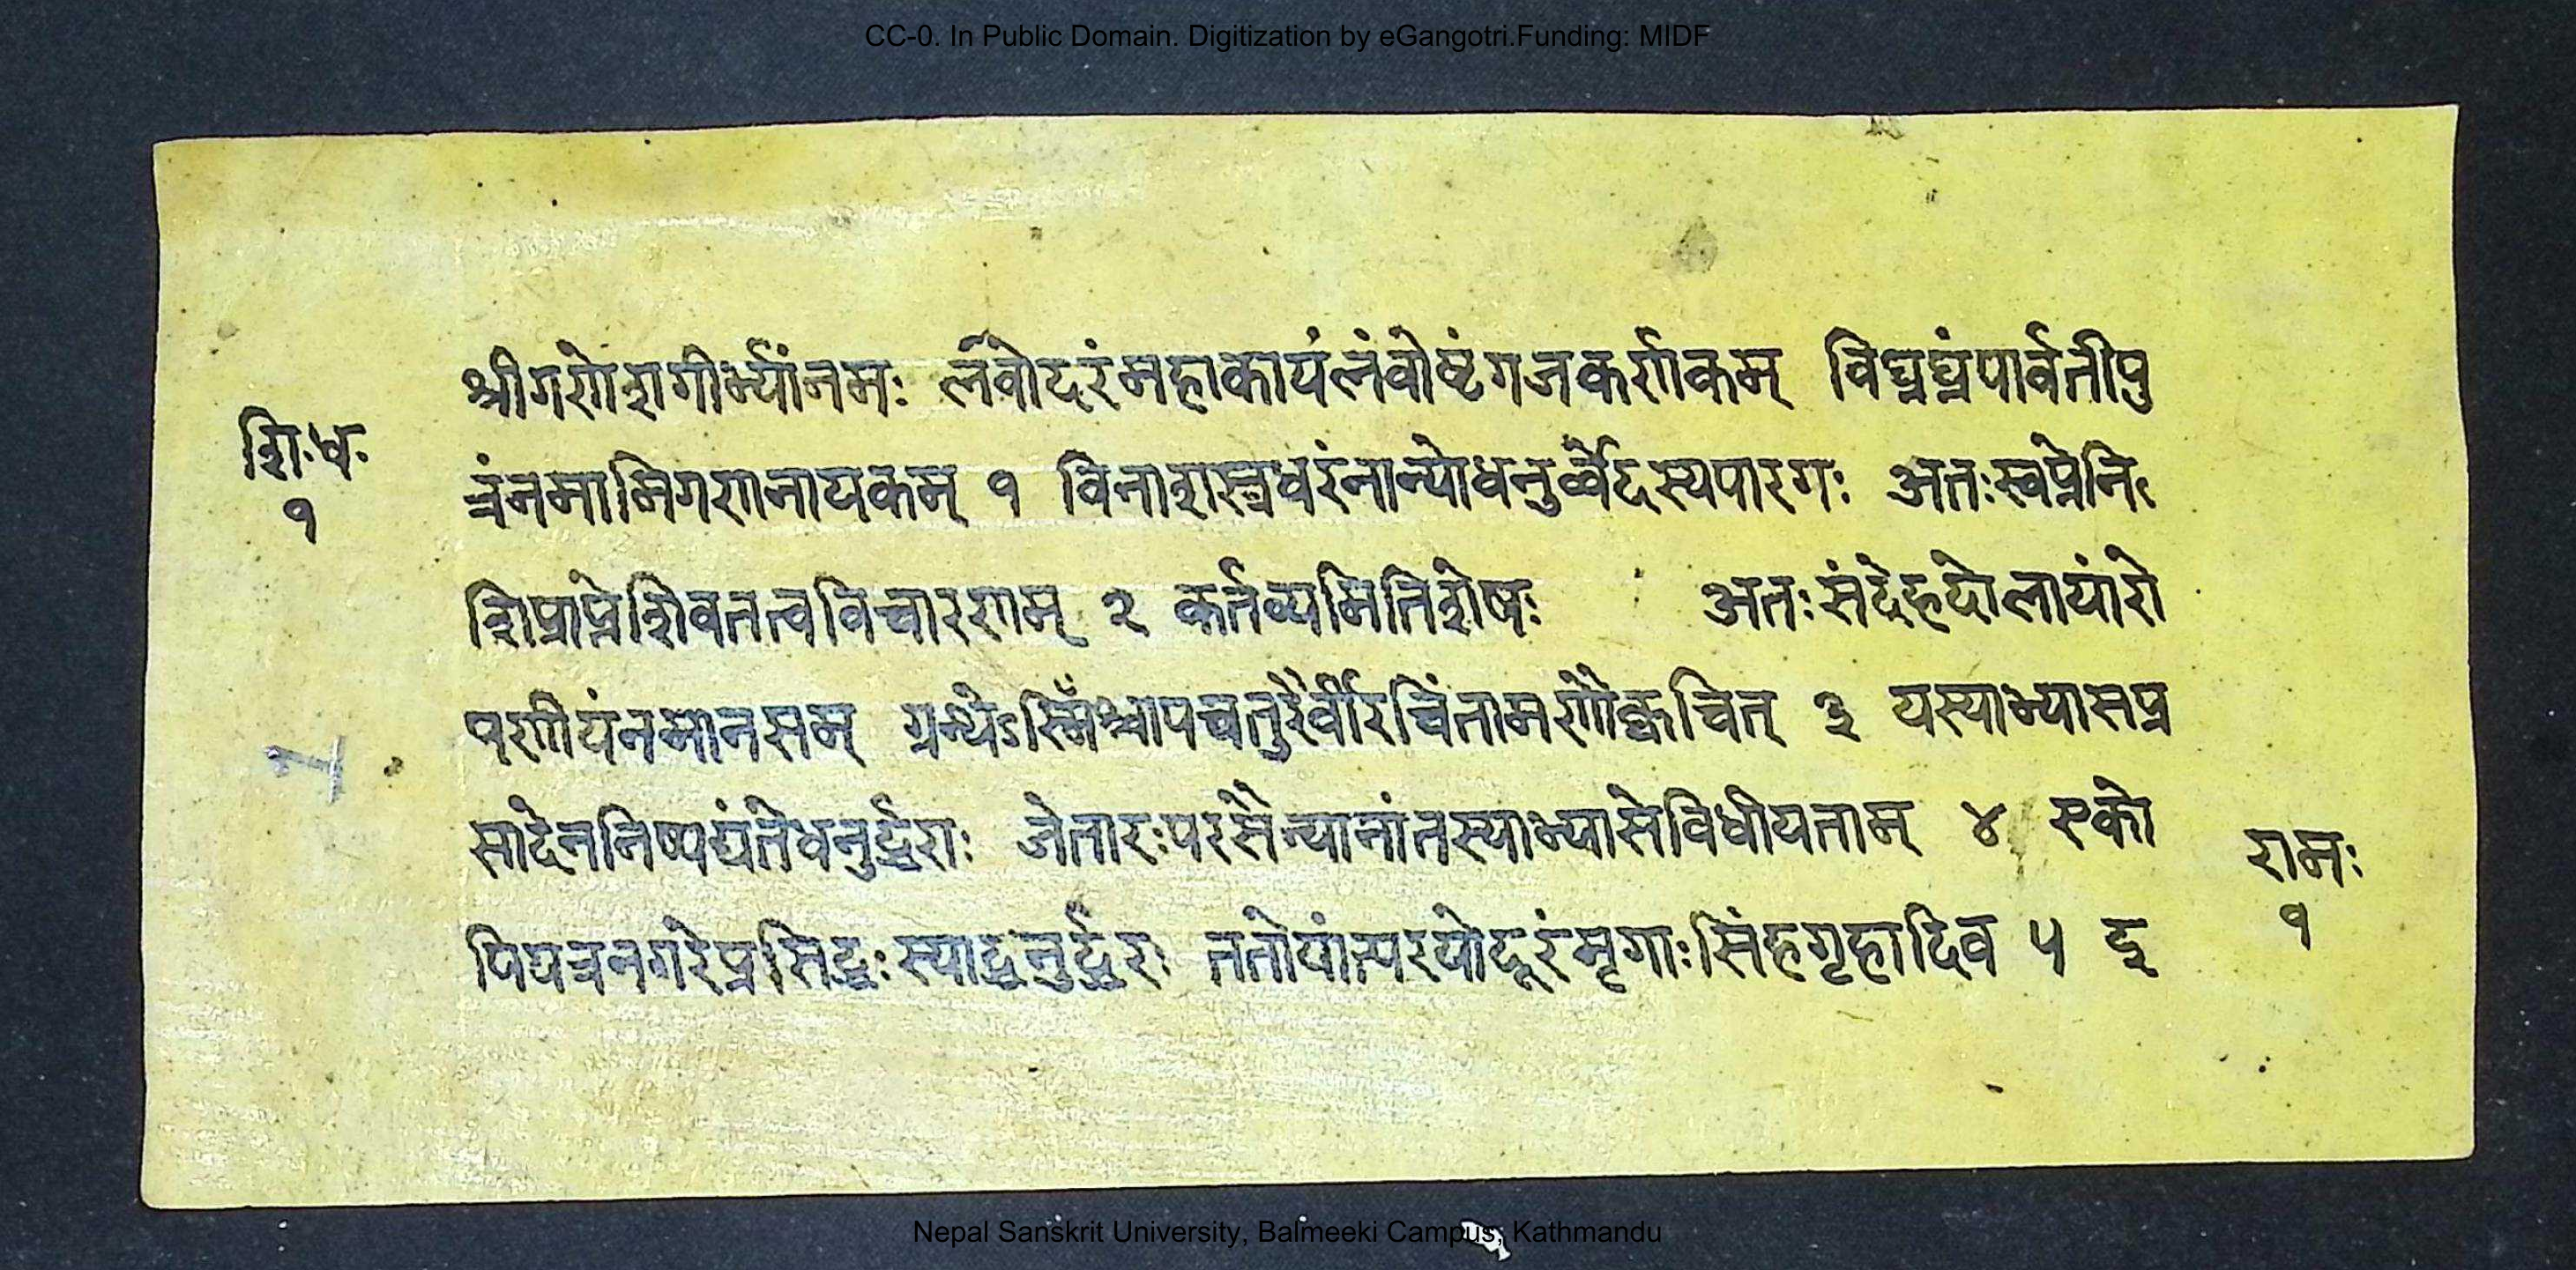 CC-0. In Public Domain. Digitization by eGangotri.Funding: MIDF
श्रीगणेशगीर्भ्यांनमः लंवोदरंमहाकायंलंवोष्टंगजकर्णकम् विघ्नघ्नंपार्वतीपु
शिःधः
१
त्रंनमामिगणनायकम् १ विनाशस्त्रधरंनान्योधनुर्व्वेदस्यपारगः अतःस्वप्नेनि
शिप्राप्नेशिवतत्वविचारणम् २ कर्तव्यमितिशेषः अतःसंदेहदोलायांरो
पणीयंनमानसम् ग्रन्थेऽस्मिँश्चापचतुरैर्वीरचिंतामणौक्वचित् ३ यस्याभ्यासप्र
सादेननिष्पद्यंतेधनुर्द्धराः जेतारःपरसैन्यानांतस्याभ्यासेविधीयताम् ४ एको
पियत्रनगरेप्रसिद्धःस्याद्धनुर्द्धरः ततोयांत्यरयोदूरंमृगाःसिंहगृहादिव ५ द्व
रामः
१
Nepal Sanskrit University, Balmeeki Campus, Kathmandu